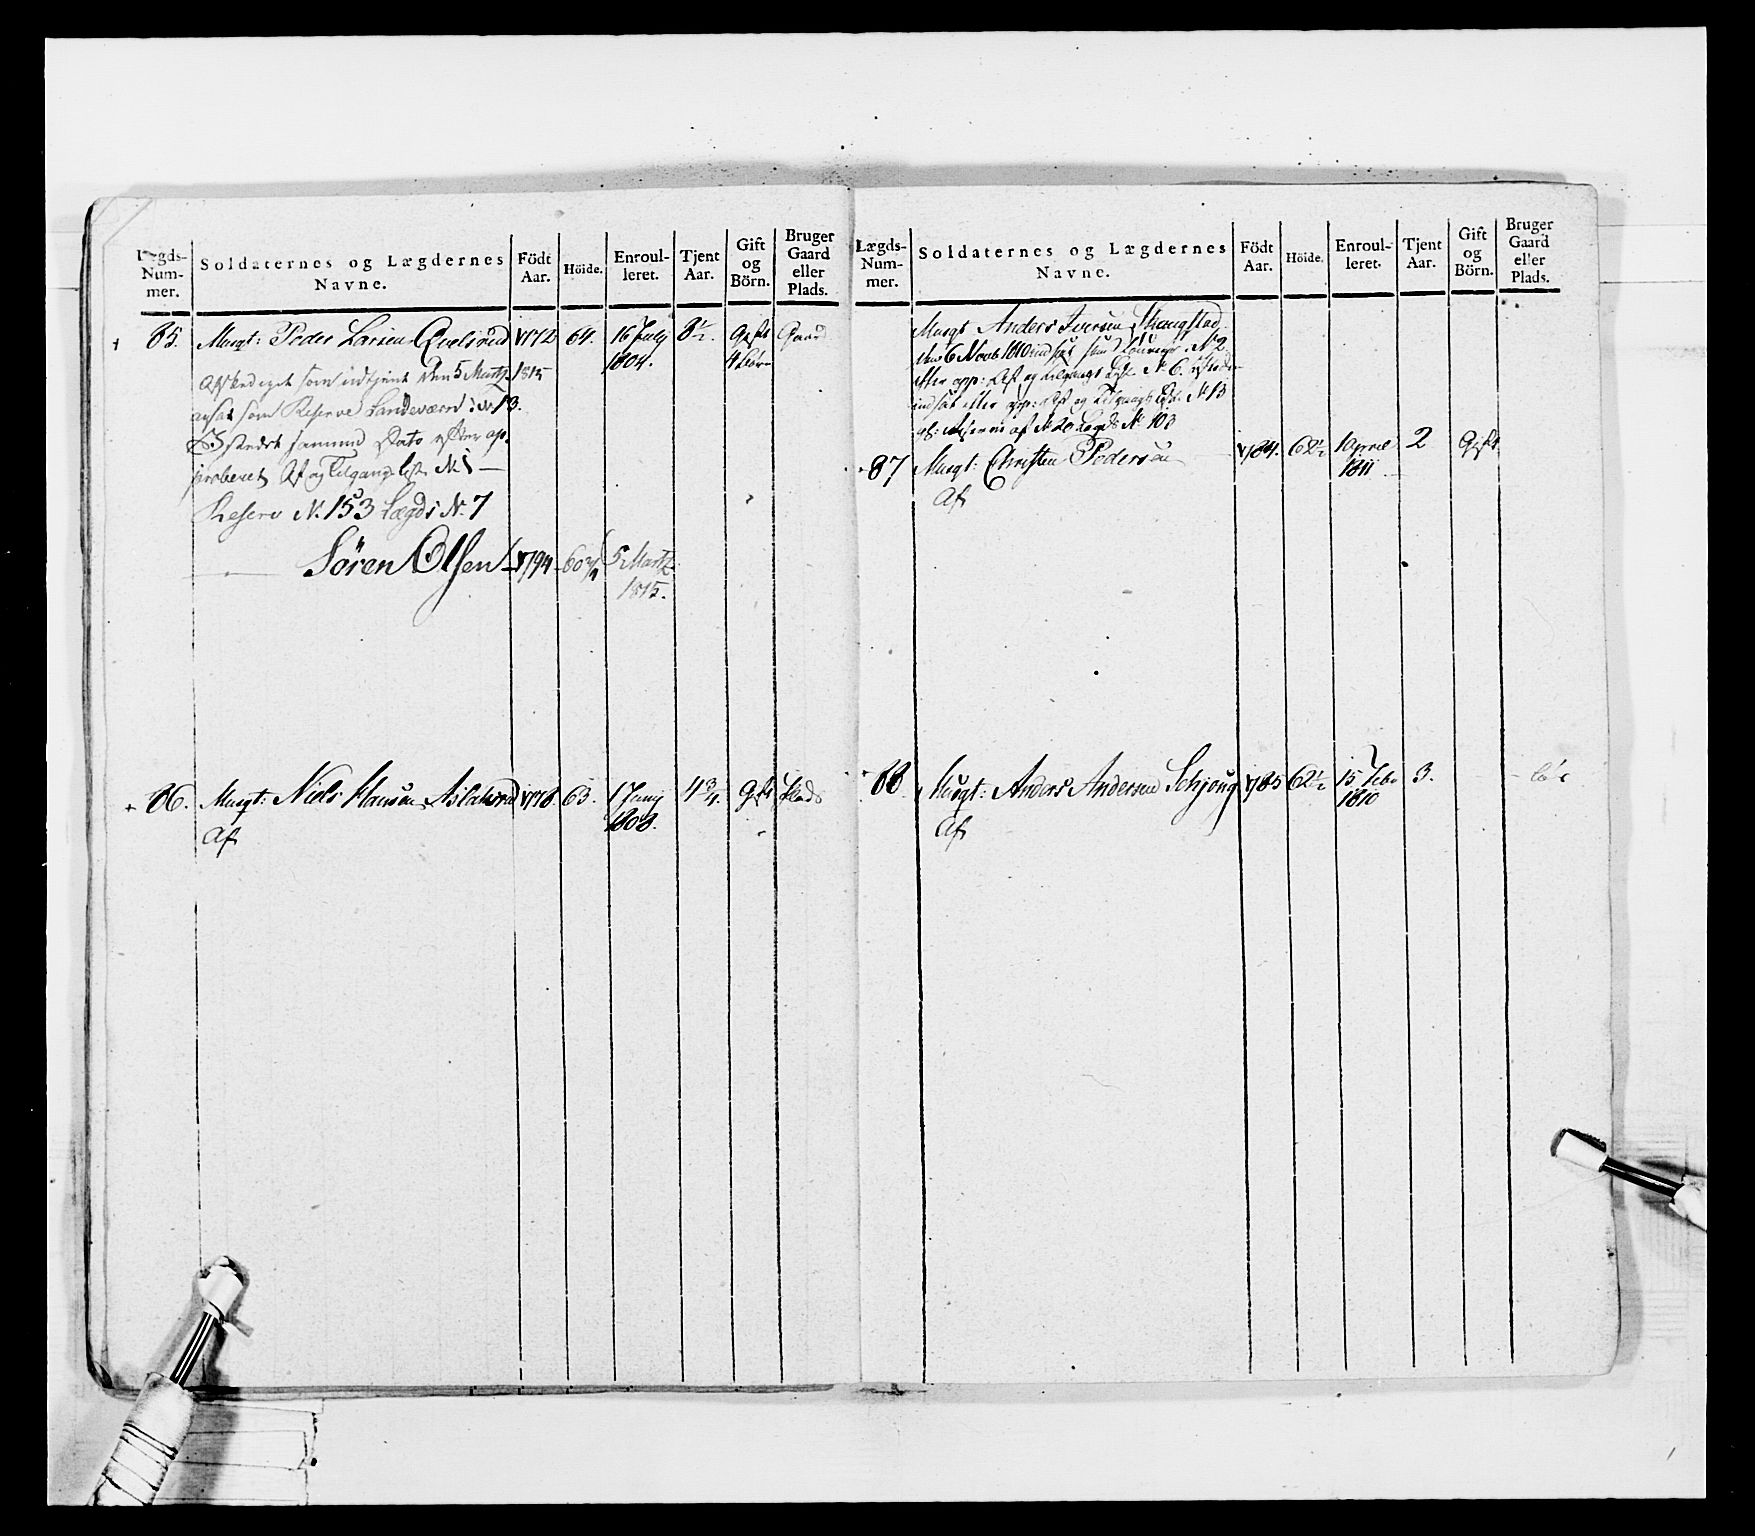 Lægds-Num-mer. Soldaternes og Lægdernes Navne. Födt Aar. Höide. Enroul-leret. Tjent Aar. Gift og Börn. Bruger Gaard eller Plads.
85. Musqt: Peder Larsen 1772 64. 16 July 8½. Gift Gaard
1804. 4 Börn
Afskediget som udtjent den 5 Martz 1815
ansat som Reserve Landeværn: No 13.
samme Dato efter ap-
proberet Af og Tilgang liste No 1 —
Reserv No. 153 Lægds No. 7
Sören Olsen 1794 60¾ 5 Martz
1815.
86. Musqt: Niels Hansen 1778 63. 1 Juny 4¾. Gift Plads
1808.
Af
Lægds-Num-mer. Soldaternes og Lægdernes Navne. Födt Aar. Höide. Enroul-leret. Tjent Aar. Gift og Börn. Bruger Gaard eller Plads.
Musqt Anders Iversen Skaugstad
den 6 Novb 1810 indsat som No 2
efter app: Af og Tilgangs Liste No 6.
indsat efter app: Af og Tilgangs Liste No 13
af No 20 Lægds No 103
87 Musqt: Christen Pedersen 1784. 62½ 1 April 2 Gift
1811
Af
88 Musqt: Anders Andersen Schjong 1785 62½ 15 Febr 3. — løs
1810
Af